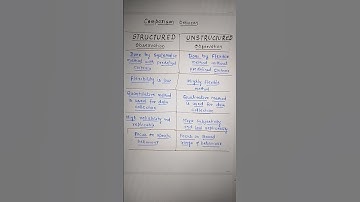 Comparison Between
STRUCTURED UNSTRUCTURED
Observation Observation
Done by Systematic Done by Flexible
method with predefined method without
criteria predefined criteria
Flexibility is low Highly flexible
method
Quantitative method Qualitative method
is used for data is used for data
collection collection
High reliability and More subjectivity
replicable and less replicable
Focus on specific Focus on broad
behaviour range of behaviour